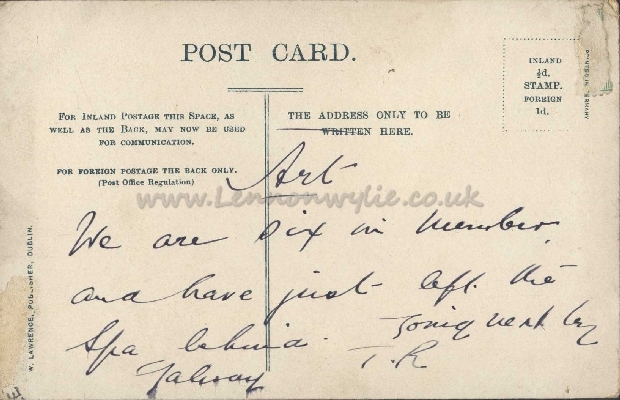 POST CARD.
INLAND
½d.
STAMP.
FOREIGN
1d.
FOR INLAND POSTAGE THIS SPACE, AS
WELL AS THE BACK, MAY NOW BE USED
FOR COMMUNICATION.
FOR FOREIGN POSTAGE THE BACK ONLY.
(Post Office Regulation)
THE ADDRESS ONLY TO BE
WRITTEN HERE.
www.Lennonwylie.co.uk
Art
We are six in number
and have just left the
Spa behind. going next by
Galway T.R
W. LAWRENCE, PUBLISHER, DUBLIN.